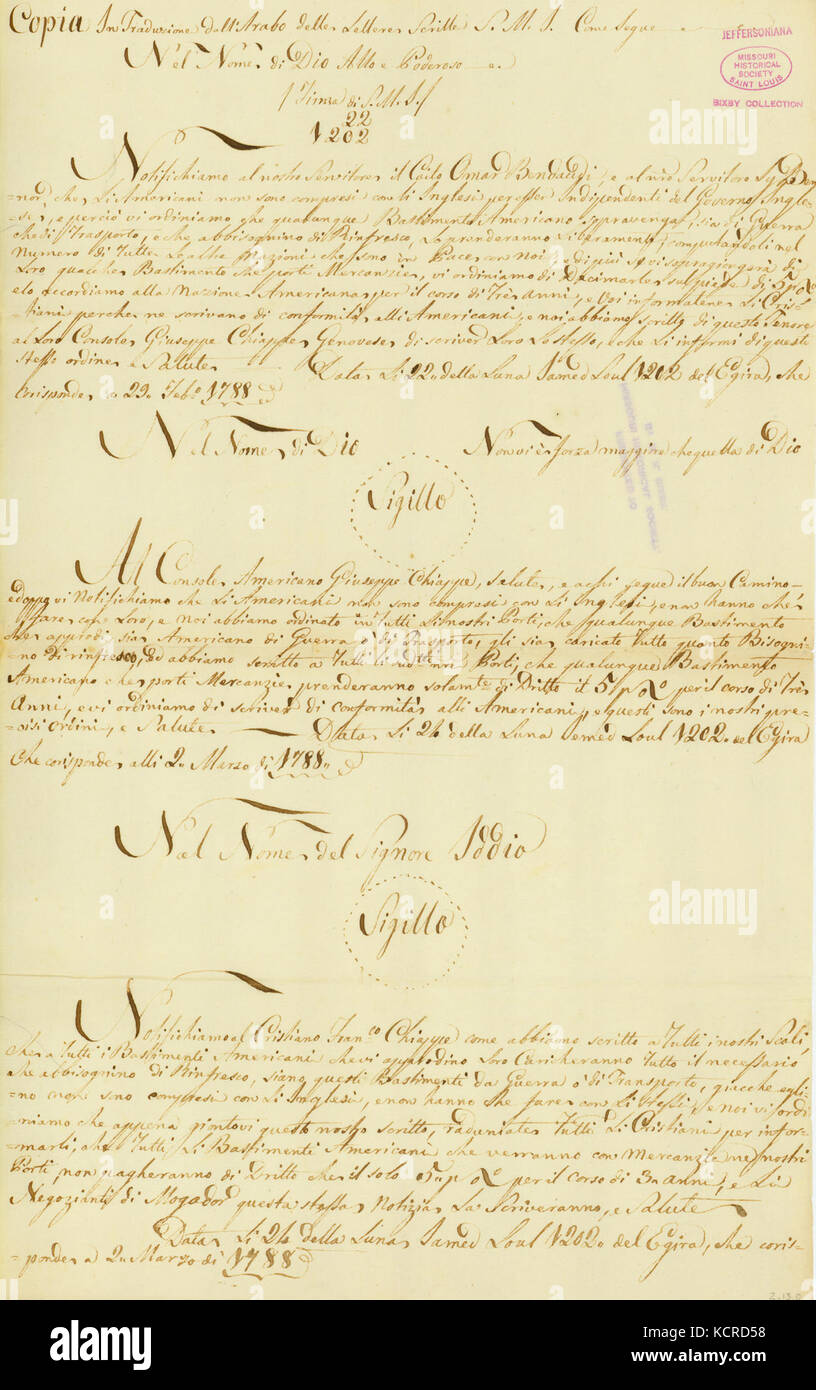 Copia In Traduzione dall'Arabo delle Lettere Scritte S. M. I. Come Segue
JEFFERSONIANA
MISSOURI
HISTORICAL
SOCIETY
SAINT LOUIS
BIXBY COLLECTION
Nel Nome di Dio Alto e Poderoso
/ Firma di S. M. I. /
22
1202
Notifichiamo al nostro Servitore il Caito Omar Bendaudi, e al nro Servitore
=nor, che Li Americani non sono compresi con li Inglesi per esser Indipendenti del Governo Ingle-
=se, e perciò vi ordiniamo che qualunque Bastimento Americano sopravenga, sia di Guerra
che di Trasporto, e che abbisognino di Rinfresco, Lo prenderanno Liberamente, computandoli nel
Numero di Tutte Le altre Nazioni che sono in Pace con noi, e di più se vi sopragiongerà di
Loro qualche Bastimento che porti Mercanzie, vi ordiniamo di Decimarlo sul piede di 5 p%
e lo accordiamo alla Nazione Americana per il corso di Tre anni, e voi informatene Li Cris-
=tiani perche ne scrivano di conformità alli Americani, e noi abbiamo scritto di questo Tenore
al Loro Console Giuseppe Chiappe Genovese di scriver Loro Lo stesso, e che Li informi di questo
stesso ordine e Salute Data Li 22. della Luna Jamed Loul 1202 del Egira, che
Corisponde a 29. Febro. 1788
Nel Nome di Dio Non vi è forza maggiore che quella di Dio
Sigillo
Al Console Americano Giuseppe Chiappe, Salute, e a chi segue il buon Camino
e doppo vi Notifichiamo che Li Americani non sono compresi con Li Inglesi, e non hanno che
fare con Loro, e noi abbiamo ordinato in Tutti Li nostri Porti, che qualunque Bastimento
che approdi sia Americano di Guerra o di Trasporto, gli sia caricato Tutto quanto Bisogni-
=no di rinfresco, ed abbiamo scritto a Tutti li sudtti nri Porti, che qualunque Bastimento
Americano che porti Mercanzie, prenderanno solamte di Dritto il 5 p% per il corso di Tre
Anni, e vi ordiniamo di scriver di Conformità alli Americani, e questi sono i nostri pre-
=cisi Ordini, e Salute Data Li 24 della Luna Jemed Loul 1202 del Egira
Che corisponde alli 2. Marzo di 1788.
Nel Nome del Signore Iddio
Sigillo
Notifichiamo al Cristiano Franco Chiappe come abbiamo scritto a Tutti i nostri Scali,
che a Tutti i Bastimenti Americani che vi approdino Loro Caricheranno Tutto il necessario
che abbisognino di Rinfresco, siano questi Bastimenti da Guerra o di Transporto, giacche egli-
=no non sono compresi con Li Inglesi, e non hanno che fare con Li stessi, e noi vi ordi-
=niamo che appena giontovi questo nostro scritto, raduniate Tutti Li Cristiani per infor-
=marli, che Tutti Li Bastimenti Americani che verranno con Mercanzie ne nostri
Porti, non pagheranno di Dritto che il solo 5 p% per il corso di 3. anni, e Li
Negozianti di Mogador questa stessa Notizia La Scriveranno, e Salute
Data Li 24 della Luna Jamed Loul 1202. del Egira, che coris-
=ponde a 2. Marzo di 1788
alamy
Image ID: KCRD58
www.alamy.com